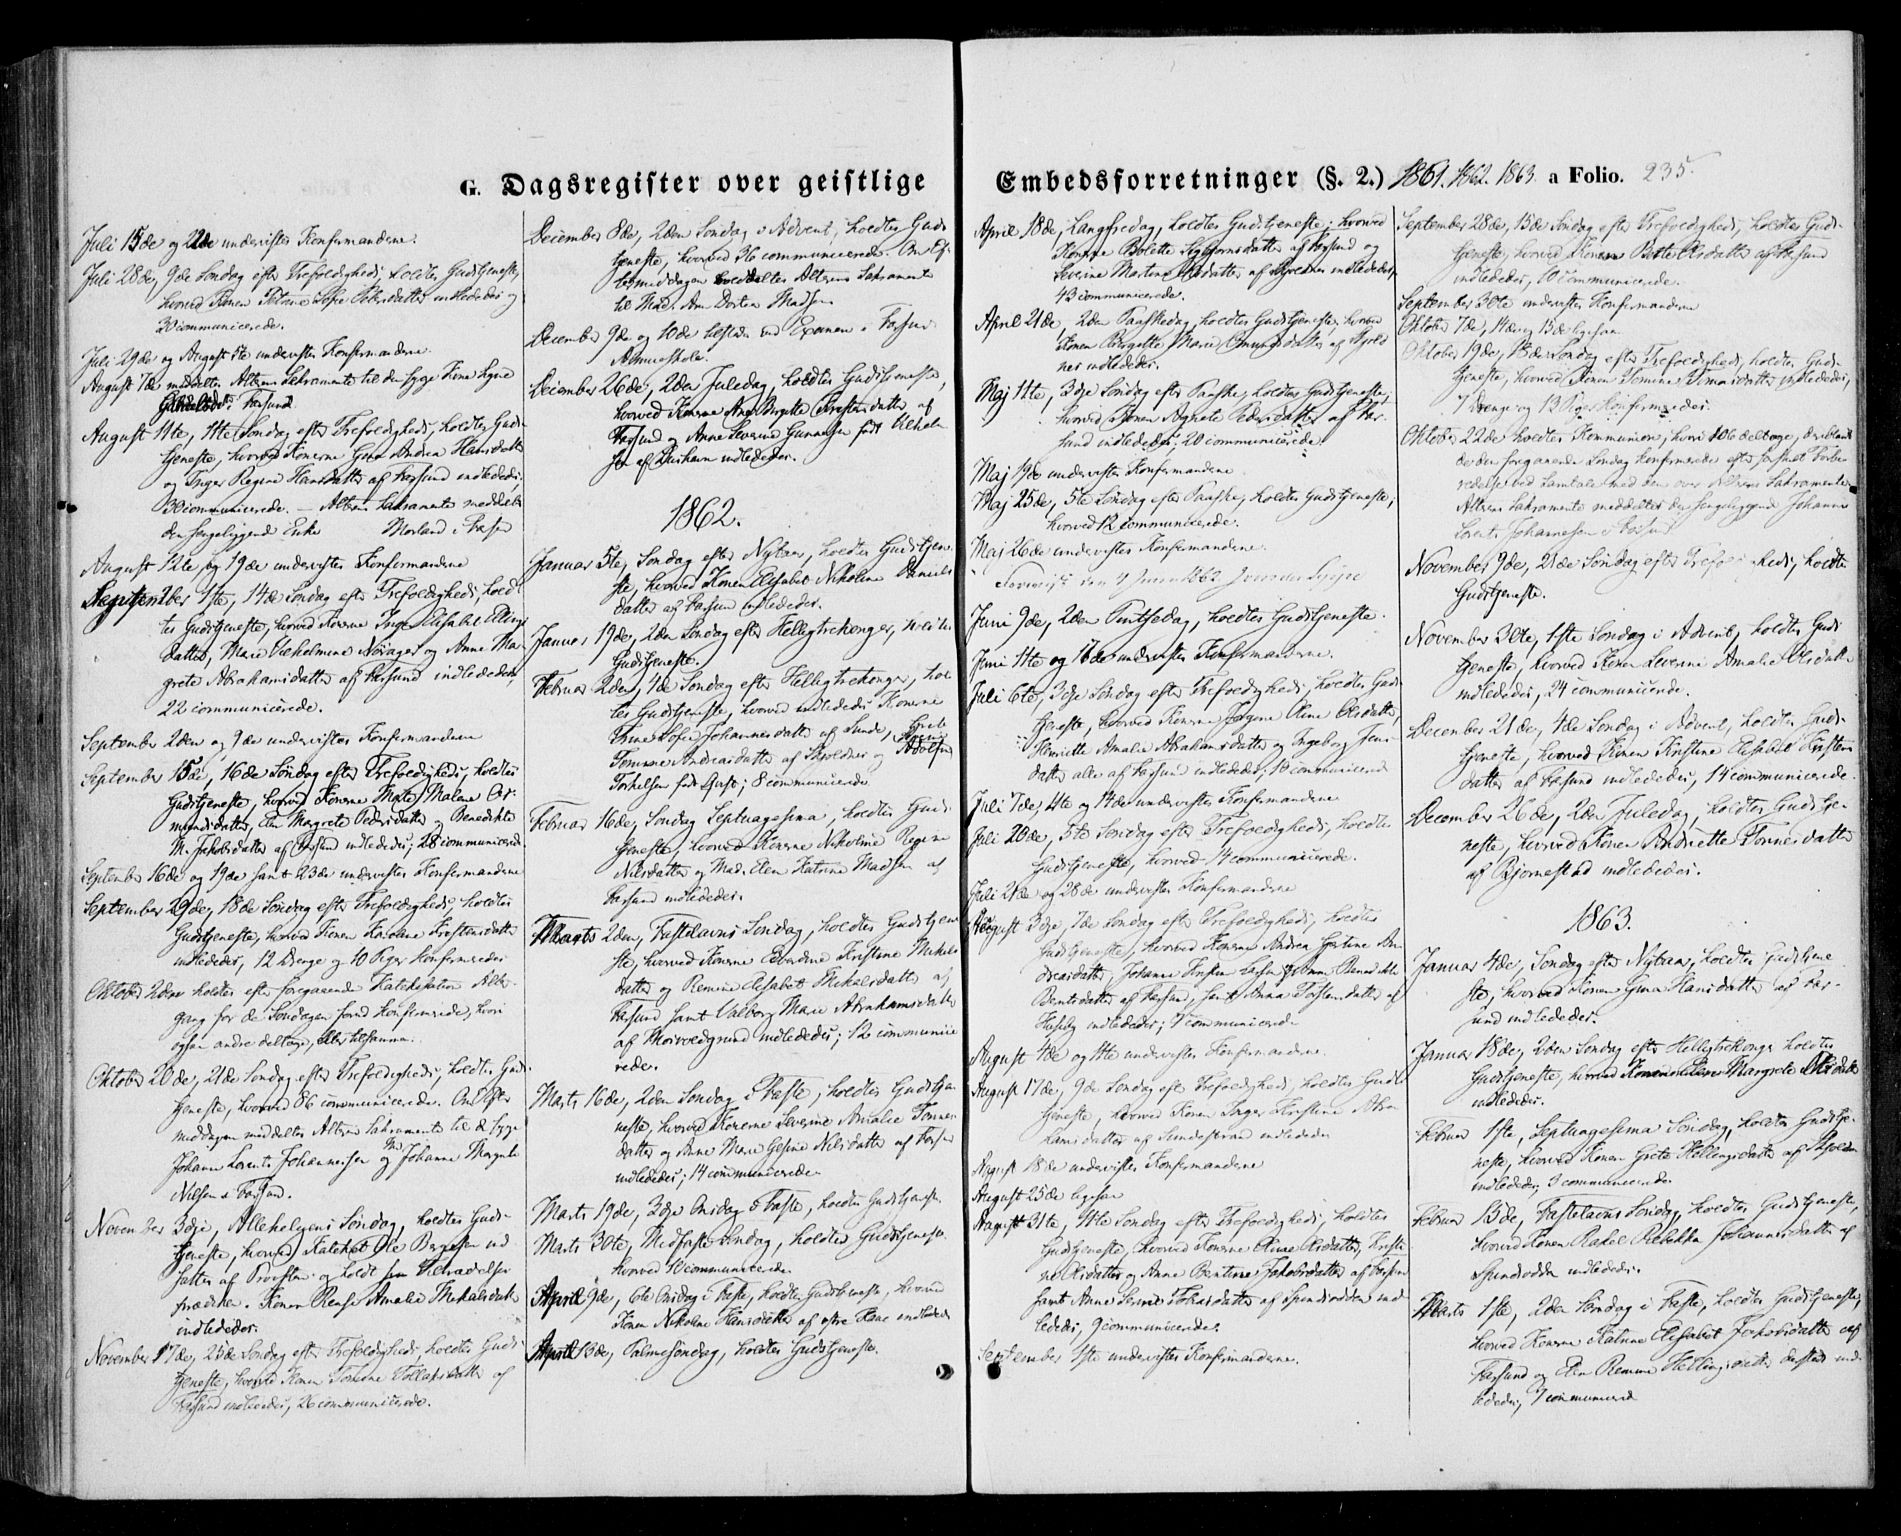 G. Dagsregister over geistlige Embedsforretninger (§. 2.) 1861. 1862. 1863. a Folio. 235.
Juli 15de og 22de undervistes Konfirmanderne.
Juli 28de, 9de Søndag efter Trefoldigheds holdtes Gudstjeneste,
hvorved Konen Sofie Petersdatter indlededes og
30 communicerede.
Juli 29de og August 5te undervistes Konfirmanderne.
August 7de meddeltes Alterens Sakramente til den syge Kone
Farsund.
August 11te, 11te Søndag efter Trefoldigheds, holdtes Gud-
tjeneste, hvorved Konerne Andrea Hansdatter
og Inger Regine Hansdatter af Farsund indlededes,
30 communicerede. – Alterens Sakramente meddeltes
den sengeliggende Enke Morland i Farsund
August 12te og 19de undervistes Konfirmanderne
September 1ste, 14de Søndag efter Trefoldigheds, hold-
tes Gudstjeneste, hvorved Konerne Inger Elisabet Ellings-
datter, Marie Vilhelmine og Anne Mar-
grete Abrahamsdatter af Farsund indlededes,
22 communicerede.
September 2den og 9de undervistes Konfirmanderne
September 15de, 16de Søndag efter Trefoldigheds, holdtes
Gudstjeneste, hvorved Konerne Malene
Elen Margrete Pedersdatter og Benedikte
M. Jakobsdatter af Farsund indlededes; 28 communicerede.
September 16de og 19de samt 23de undervistes Konfirmanderne
September 29de, 18de Søndag efter Trefoldigheds holdtes
Gudstjeneste, hvorved Konen Karoline Kristensdatter
indlededes, 12 Drenge og 10 Piger konfirmeredes
Oktober 2den holdtes efter foregaaende Katekisation Alter-
gang for de Søndagen forud konfirmerede, hvori
ogsaa andre deltoge,
Oktober 20de, 21de Søndag efter Trefoldigheds, holdtes Gud-
tjeneste, hvorved 86 communicerede. Om Efter-
middagen meddeltes Alterens Sakramente til de syge
Johann Lorents Johannessen og Johanne Margrete
Nielsen i Farsund.
November 3dje, Allehelgens Søndag, holdtes Guds-
tjeneste, hvorved Kateket Ole
af Provsten og holdt sin
prædiken. Konen Amalie Mikalsdatter
indlededes.
November 17de, 25de Søndag efter Trefoldigheds holdtes Guds-
tjeneste, hvorved Konen Tomine Tollaksdatter af
Farsund indlededes, 26 communicerede.
December 8de, 2den Søndag i Advent, holdtes Guds-
tjeneste, hvorved 36 communicerede. Om Ef-
termiddagen meddeltes Alterens Sakramente
til Mad. Ann Dorten Madsen
December 9de og 10de ved Examen i Farsund
Almueskole.
December 26de, 2den Juledag, holdtes Gudstjeneste,
hvorved Konerne Ane Birgitte Kristensdatter af
Farsund og Anne Severine Gunnersen født
af indlededes.
1862.
Januar 5te, Søndag efter Nytaar, holdtes Gudstjene-
ste, hvorved Konen Elisabet Nikoline Daniels-
datter af Farsund indlededes.
Januar 19de, 2den Søndag efter Helligtrekonger, holdtes
Gudstjeneste.
Februar 2den, 4de Søndag efter Helligtrekonger, hol-
tes Gudstjeneste, hvorved indlededes Konerne
Trine Sofie Johannesdatter af Sunde,
Tomine Andreasdatter af Skjoldnes og
Torkelsen født 8 communicerede
Februar 16de, Søndag Septuagesima, holdtes Guds-
tjeneste, hvorved Konerne Nikoline Regine
Nilsdatter og Mad. Elen Katrine Madsen af
Farsund indlededes.
Marts 2den, Fastelavns Søndag, holdtes Gudstjene-
ste, hvorved Konerne Kristine Mikals-
datter og Elisabet Mikalsdatter af
Farsund samt Valborg Marie Abrahamsdatter
af indlededes; 12 communice-
rede.
Marts 16de, 2den Søndag i Faste, holdtes Gudstje-
neste, hvorved Konerne Severine Amalie Tønnes-
datter og Anne Marie Gesine Nilsdatter af Farsund
indlededes; 14 communicerede
Marts 19de, 2den Onsdag i Faste, holdtes Gudstjeneste.
Marts 30te, Midfaste Søndag, holdtes Gudstjeneste,
hvorved 10 communicerede.
April 9de, 6te Onsdag i Faste, holdtes Gudstjeneste, hvorved
Konen Nikoline Hansdatter af østre indlededes
April 13de, Palmesøndag, holdtes Gudstjeneste.
April 18de, Langfredag, holdtes Gudstjeneste, hvorved
Konerne Bolette af Farsund og
Severine Martine af Skjoldnes indlededes,
43 communicerede.
April 21de, 2den Paaskedag, holdtes Gudstjeneste, hvorved
Konen Marie af Skjold-
nes indlededes.
Maj 11te, 3dje Søndag efter Paaske, holdtes Gudstjeneste,
hvorved Konen Agnete Pedersdatter af Far-
sund indlededes; 20 communicerede.
Maj 19de underviste Konfirmanderne
Maj 25de, 5te Søndag efter Paaske, holdtes Gudstjeneste,
hvorved 12 communicerede.
Maj 26de underviste Konfirmanderne.
den 4 Juni 1862
Juni 9de, 2den Pintsedag, holdtes Gudstjeneste.
Juni 11te og 16de underviste Konfirmanderne.
Juli 6te, 3dje Søndag efter Trefoldigheds, holdtes Gud-
tjeneste, hvorved Konerne Oline Olsdatter,
Henriette Amalie Abrahamsdatter og Ingeborg Jens-
datter alle af Farsund indlededes, 10 communicerede
Juli 7de, 11te og 14de underviste Konfirmanderne
Juli 20de, 5te Søndag efter Trefoldigheds, holdtes
Gudstjeneste, hvorved 14 communicerede.
Juli 21de og 28de underviste Konfirmanderne
August 3dje, 7de Søndag efter Trefoldigheds, holdtes
Gudstjeneste, hvorved Konerne Andrea An-
dreasdatter, Johanne
Berntsdatter af Farsund, samt Anna Torstensdatter af
indlededes; 7 communicerede
August 4de og 11te underviste Konfirmanderne.
August 17de, 9de Søndag efter Trefoldigheds, holdtes Guds-
tjeneste, hvorved Konen Inger Kristine Abra-
hamsdatter af Sundestrand indlededes
August 18de underviste Konfirmanderne
August 25de ligesaa
August 31te, 11te Søndag efter Trefoldigheds, holdtes
Gudstjeneste, hvorved Konerne Oline Olsdatter, Kristi-
ne Olsdatter og Anne Bentine Jakobsdatter af Farsund
samt Anne Tobiasdatter af Spindsodden ind-
lededes, 9 communicerede.
September 1ste underviste Konfirmanderne.
September 28de, 15de Søndag efter Trefoldigheds, holdtes Gud-
tjeneste, hvorved Konen Berte Olsdatter af Farsund
indlededes, 10 communicerede.
September 30te underviste Konfirmanderne
Oktober 7de, 14de og 15de ligesaa
Oktober 19de, 18de Søndag efter Trefoldigheds, holdtes Guds-
tjeneste, hvorved Konen Tomine indlededes,
7 Drenge og 13 Piger konfirmeredes.
Oktober 22de holdtes Kommunion, hvori 106 deltoge, deriblandt
de den foregaaende Søndag konfirmerede efter forsøgt Forbe-
redelse ved Samtale med dem over Alterens Sakramente
Alterens Sakramente meddeltes den sengeliggende Johann
Lorents Johannessen i Farsund.
November 9de, 21de Søndag efter Trefoldigheds, holdtes
Gudstjeneste.
November 30te, 1ste Søndag i Advent, holdtes Guds-
tjeneste, hvorved Konen Severine Amalie Olsdatter
indlededes, 24 communicerede.
December 21de, 4de Søndag i Advent, holdtes Guds-
tjeneste, hvorved Konen Kristine Elisabet Kristens-
datter af Farsund indlededes, 14 communicerede.
December 26de, 2den Juledag, holdtes Gudstje-
neste, hvorved Konen Andriette Tønnesdatter
af Bjørnestad indlededes.
1863.
Januar 4de, Søndag efter Nytaar, holdtes Gudstjene-
ste, hvorved Konen Gina Hansdatter af Far-
sund indlededes.
Januar 18de, 2den Søndag efter Helligtrekonger holdtes
Gudstjeneste, hvorved Konen Elen Margrete Olsdatter
indlededes.
Februar 1ste, Septuagesima Søndag, holdtes Gudstje-
neste, hvorved Konen Grete Hellingsdatter af Skjoldnes
indlededes, 3 communicerede
Februar 15de, Fastelavns Søndag, holdtes Gudstjeneste,
hvorved Konen Rakel Rebekka Johannesdatter af
Spindsodden indlededes.
Marts 1ste, 2den Søndag i Faste, holdtes Gudstjeneste,
hvorved Konerne Katrine Elisabet Jakobsdatter af
Farsund og Elen Remine Hellingsdatter dersteds ind-
lededes, 7 communicerede